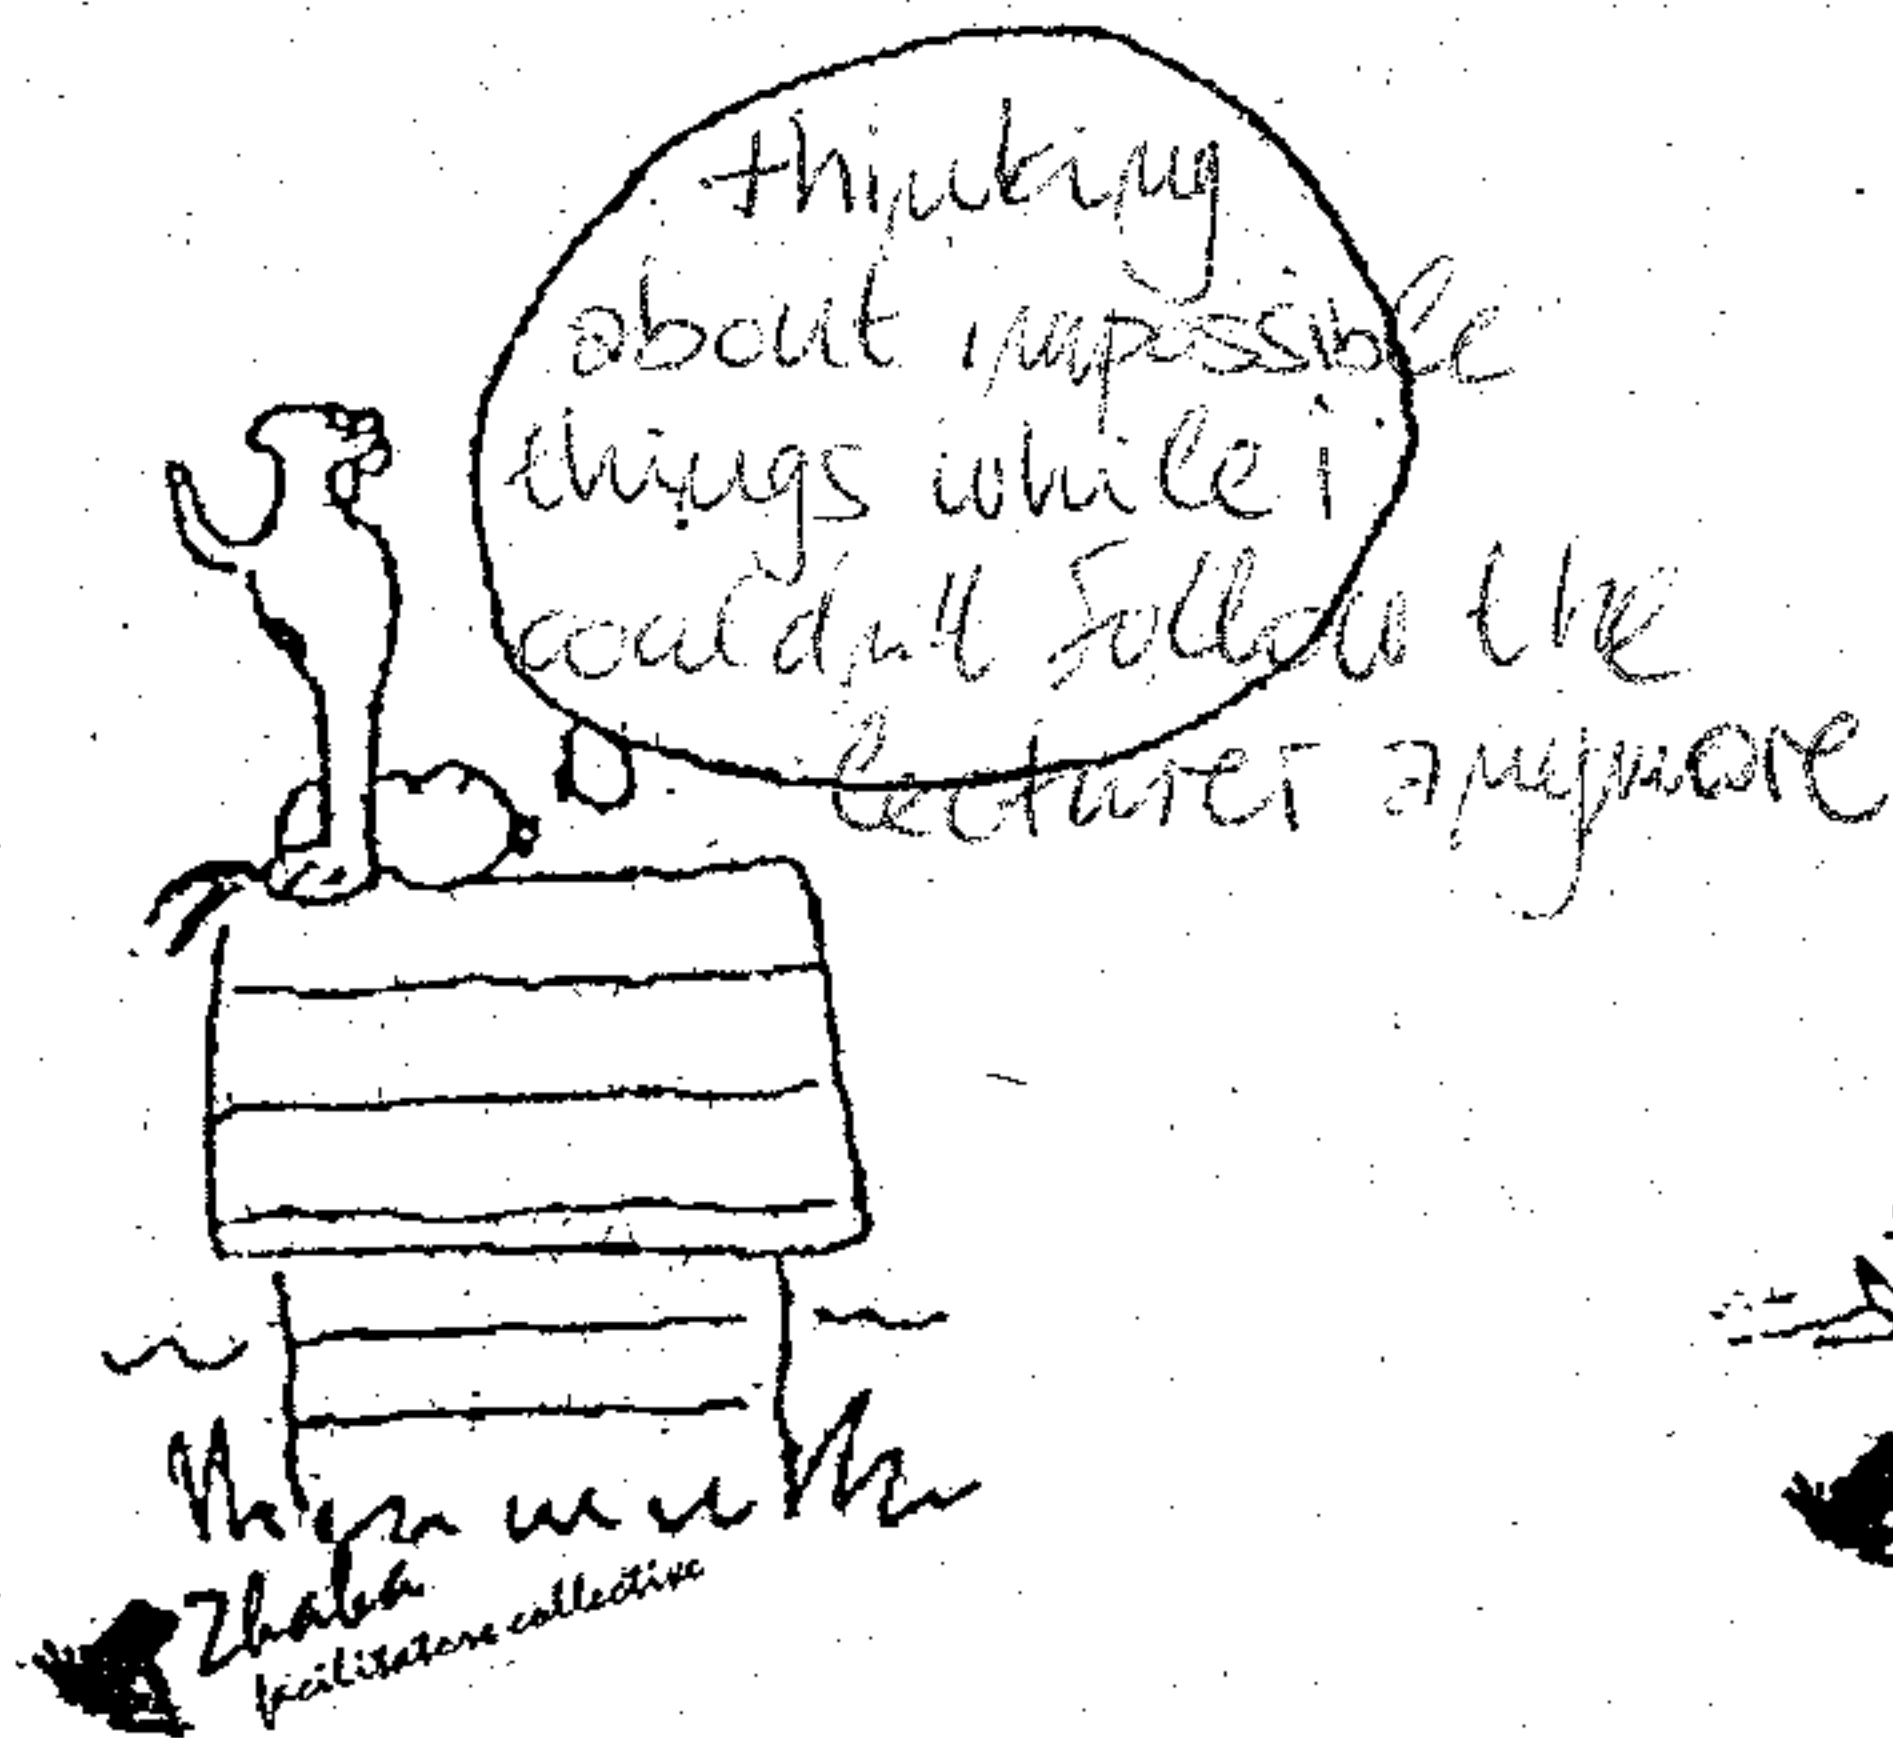 thinking
about impossible
things while i
couldn't follow the
lecturer anymore
Zhaba
facilitators collective